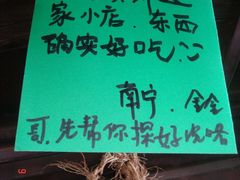 家小店.东西
确实好吃.
南宁.
哥.先帮你探好路咯